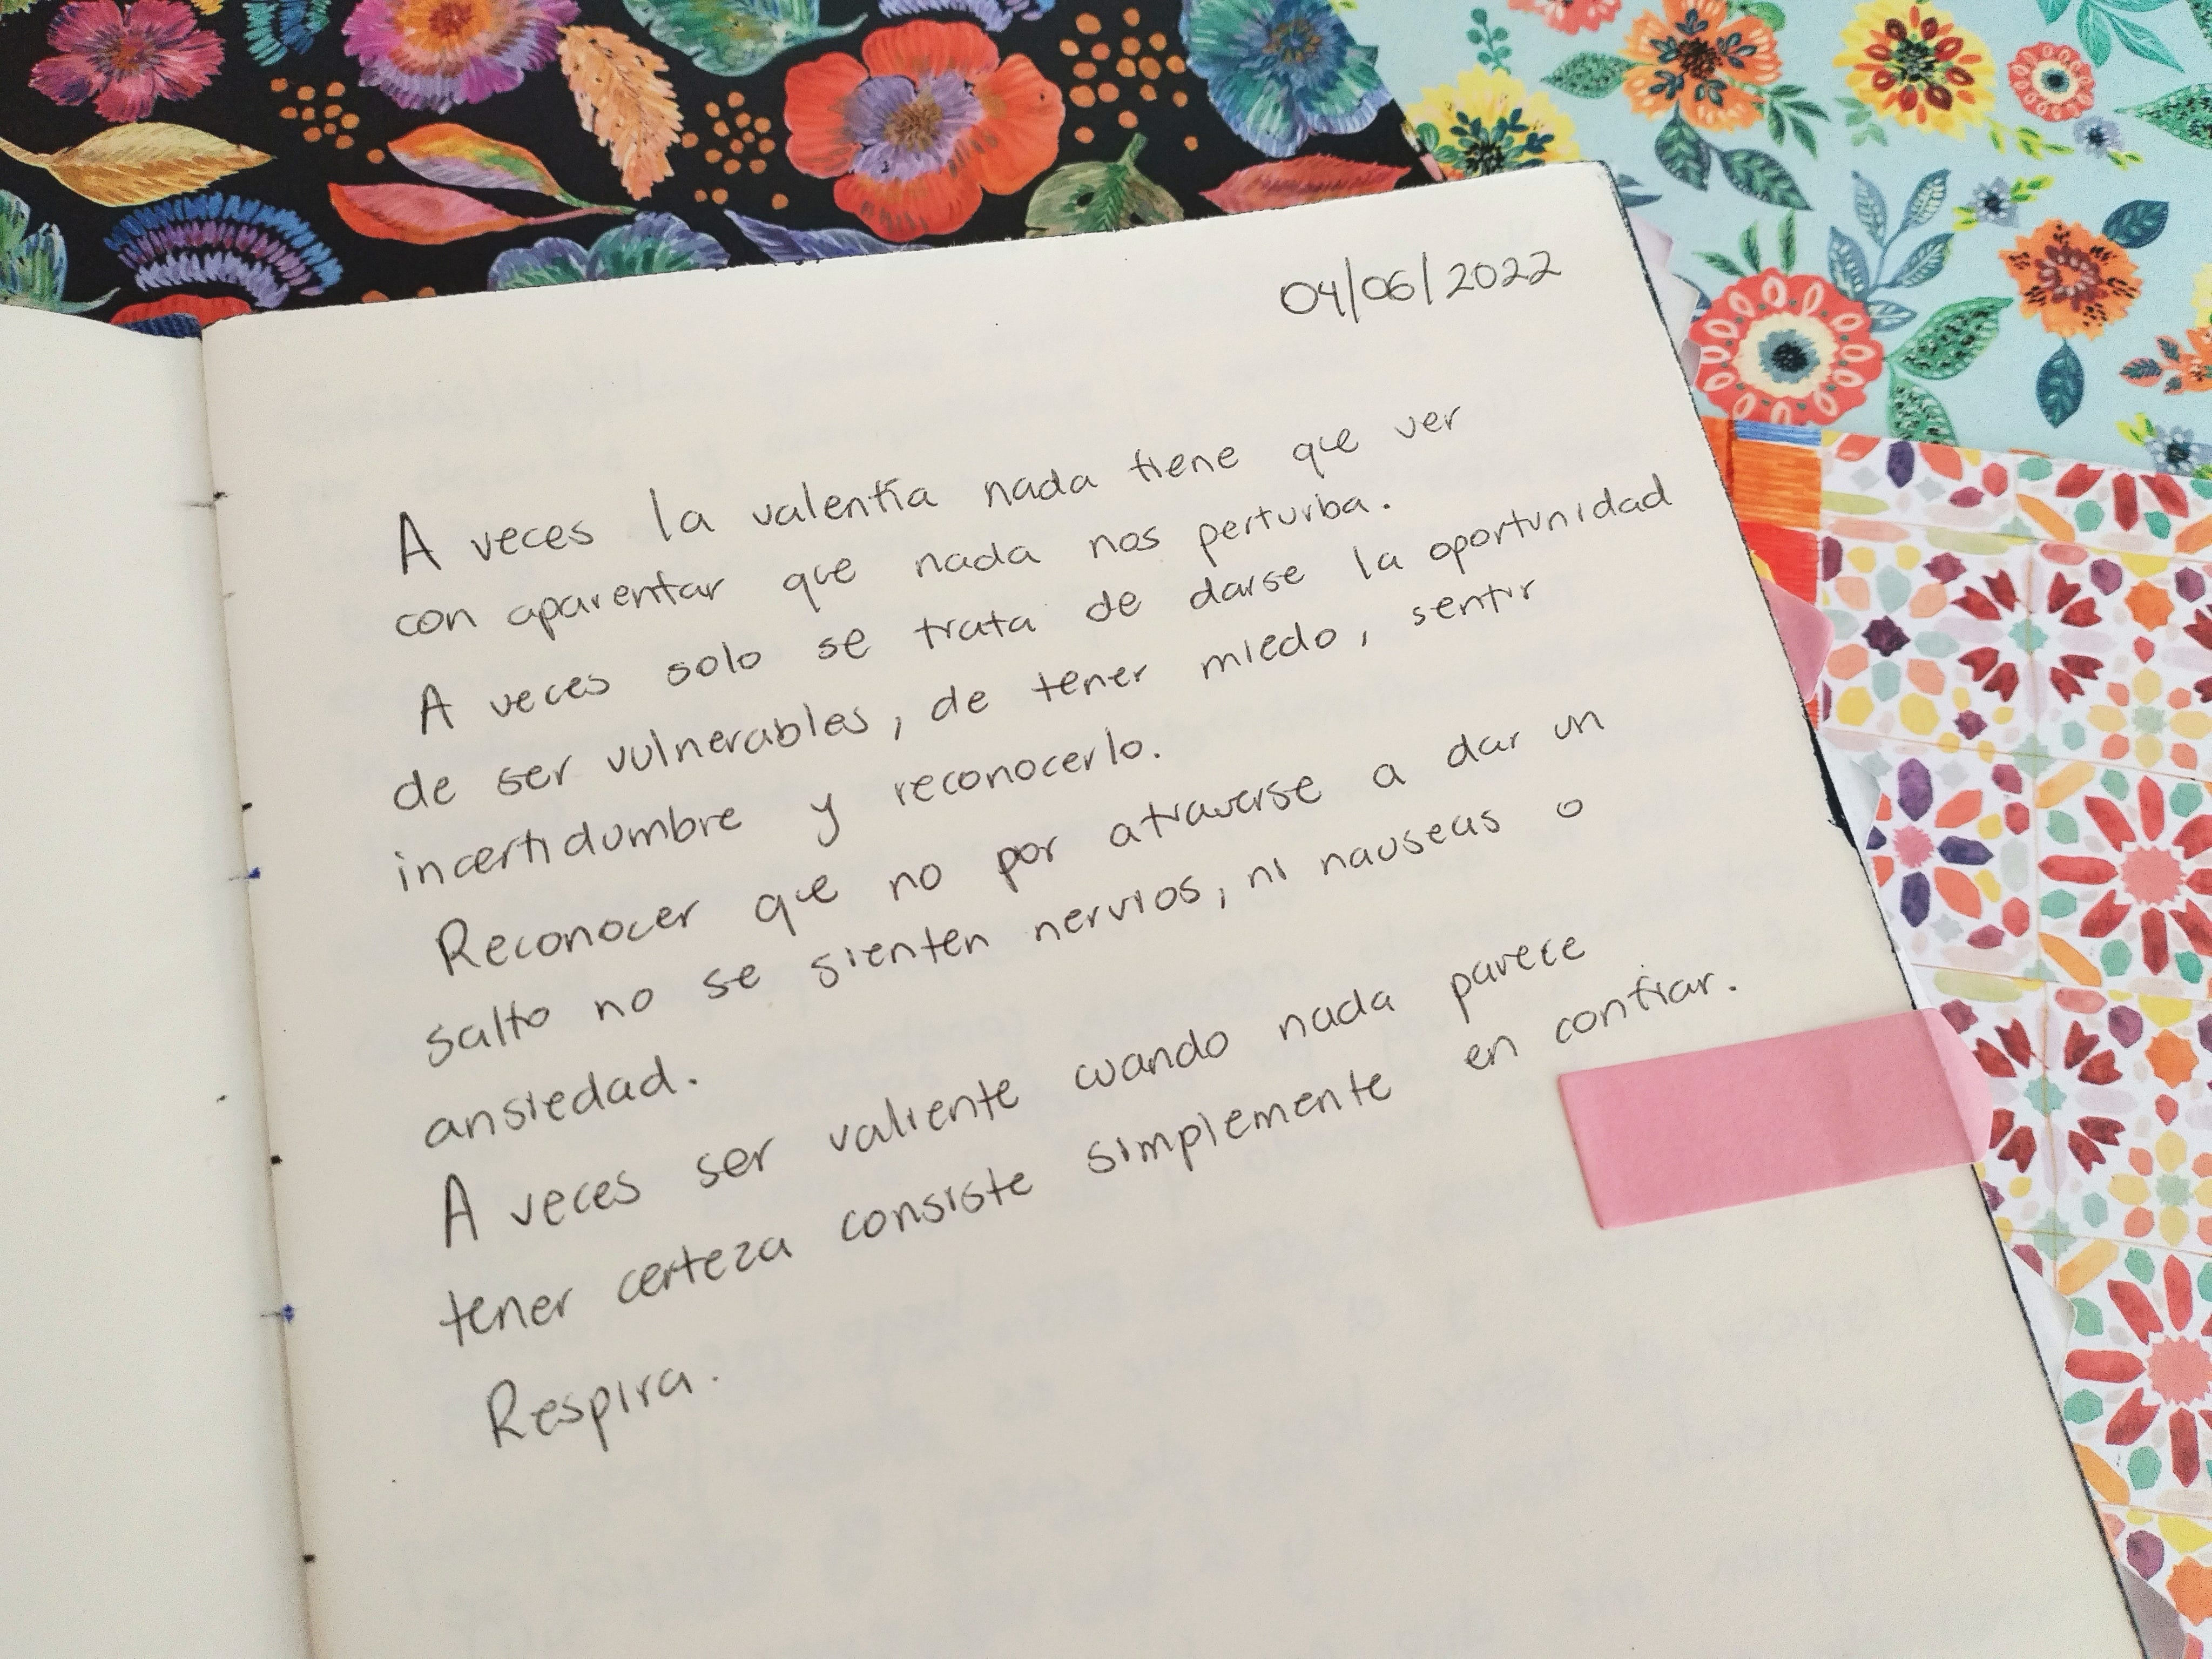 04/06/2022
A veces la valentía nada tiene que ver
con aparentar que nada nos perturba.
A veces solo se trata de darse la oportunidad
de ser vulnerables, de tener miedo, sentir
incertidumbre y reconocerlo.
Reconocer que no por atraverse a dar un
salto no se sienten nervios, ni nauseas o
ansiedad.
A veces ser valiente cuando nada parece
tener certeza consiste simplemente en confiar.
Respira.